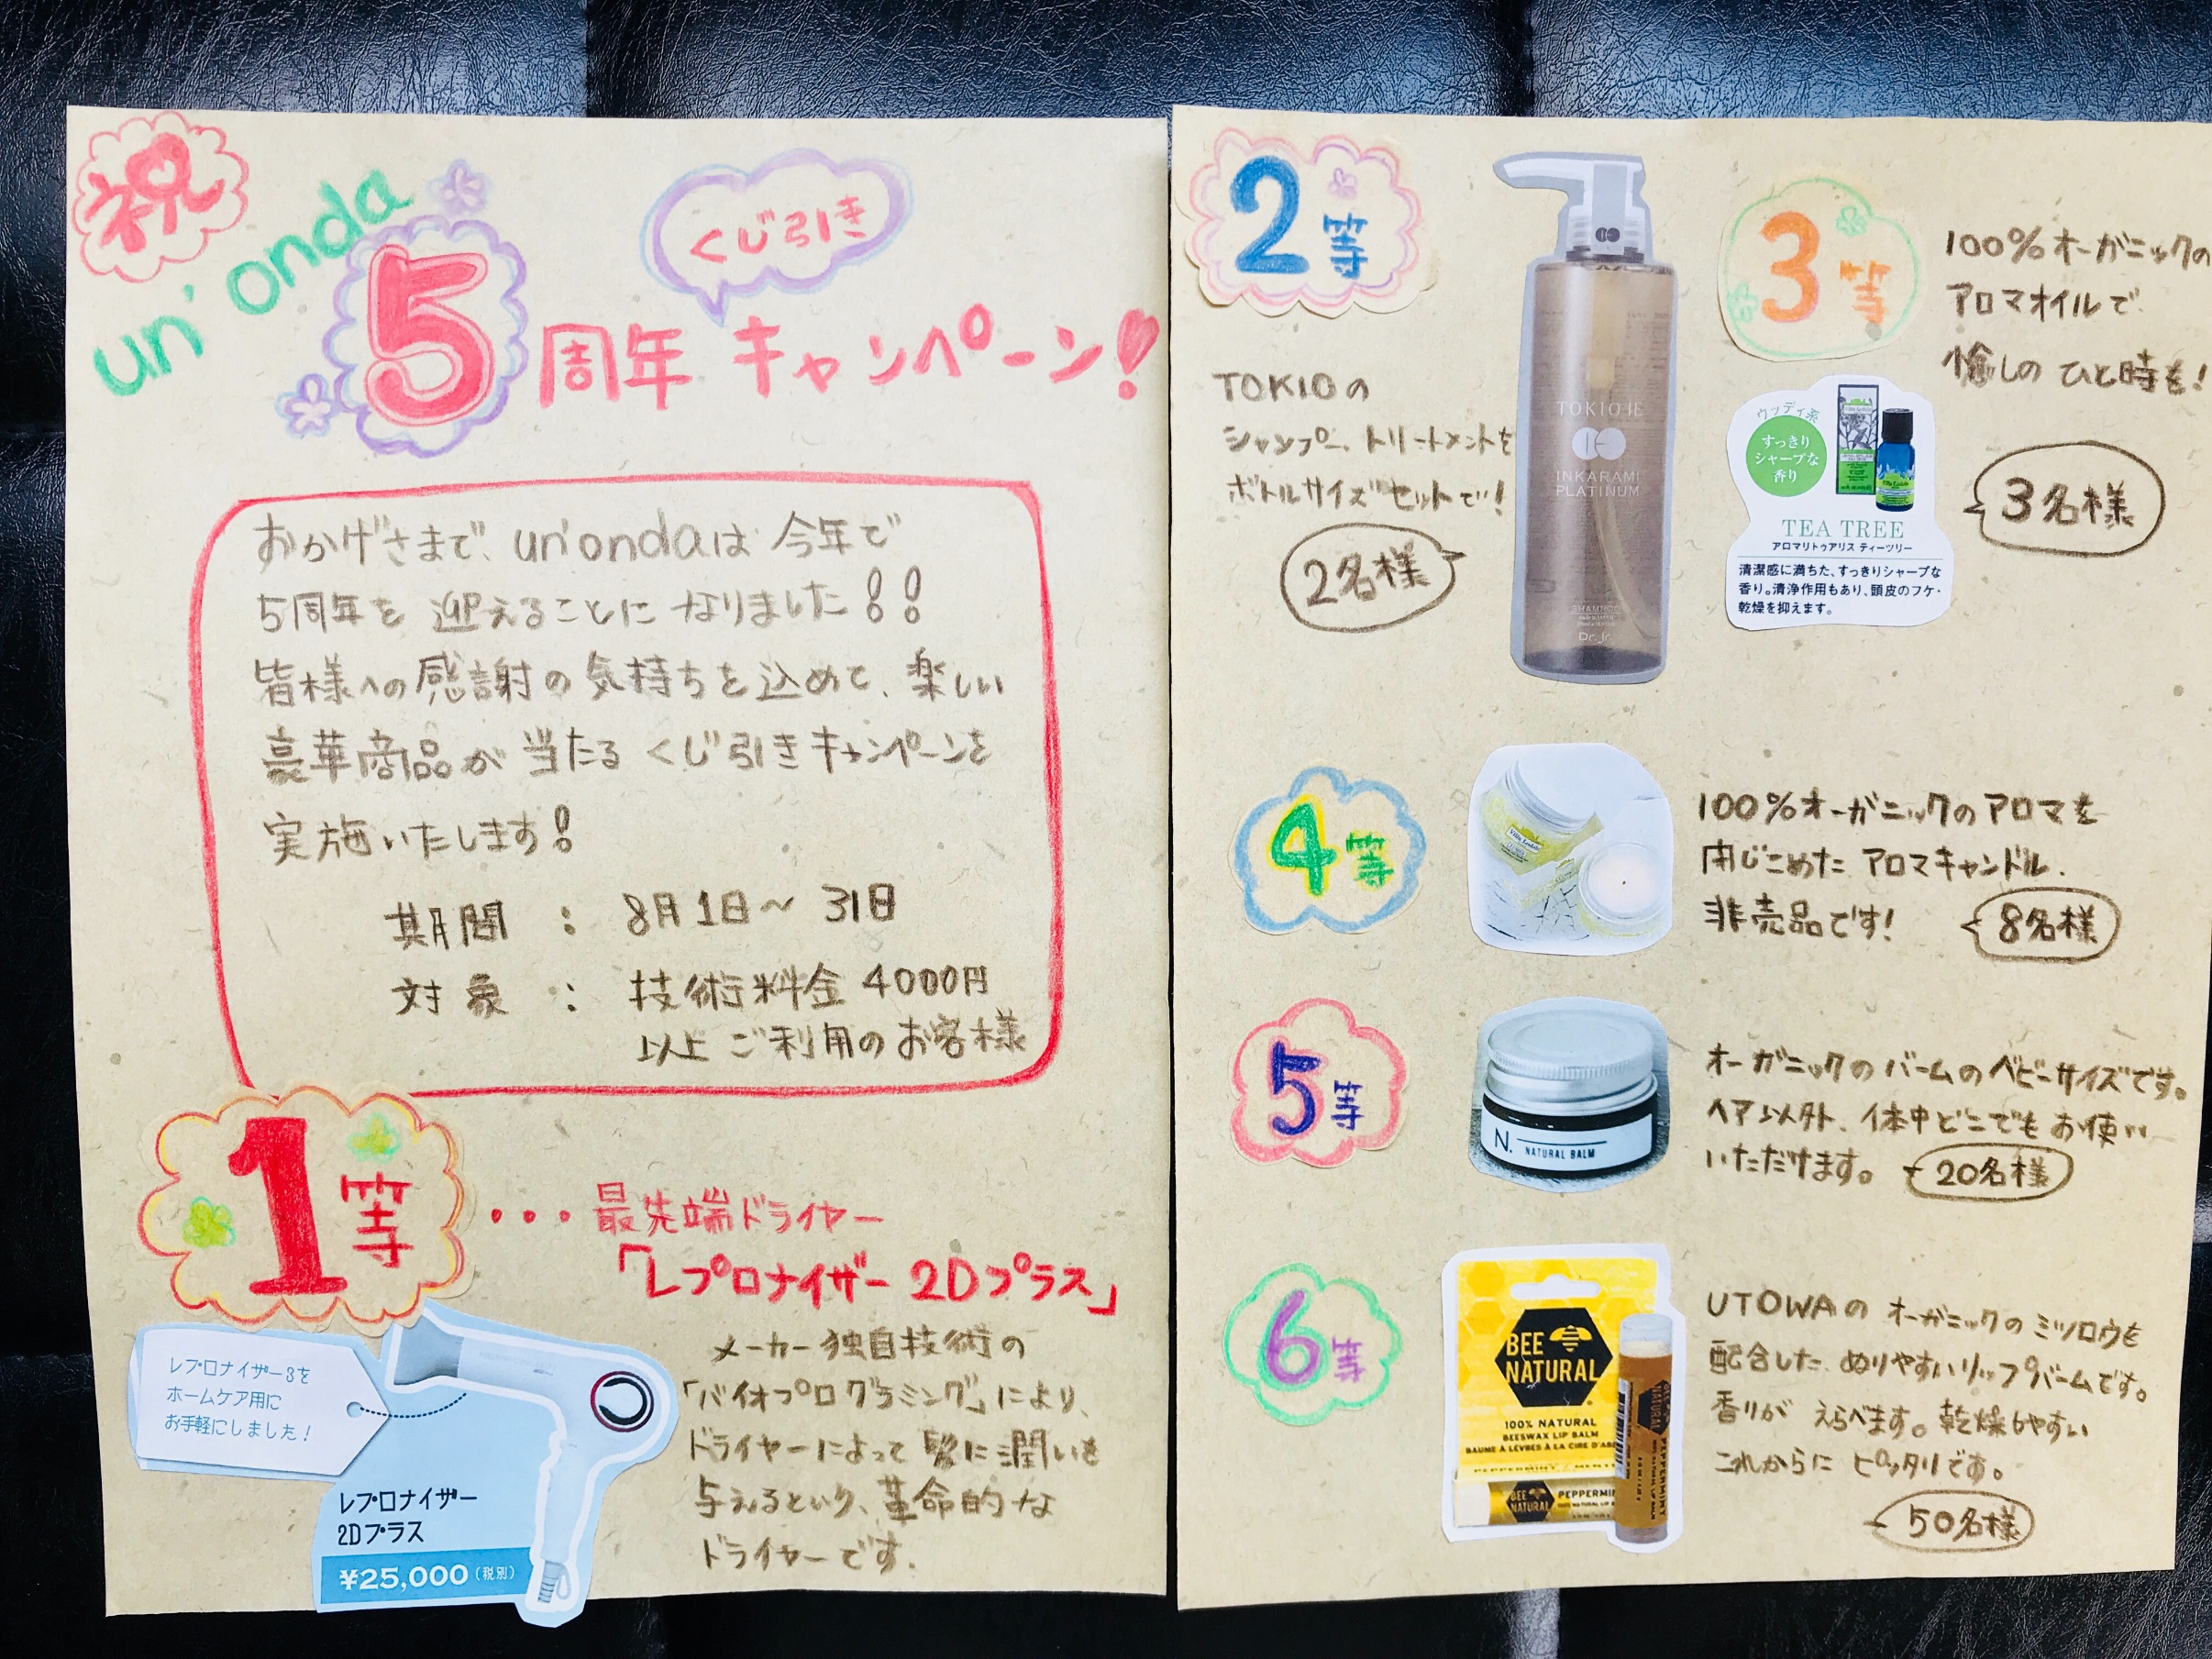 祝
un'onda
5周年 キャンペーン!
くじ引き
おかげさまで、un'ondaは今年で
5周年を迎えることになりました!!
皆様への感謝の気持ちを込めて、楽しい
豪華商品が当たるくじ引きキャンペーンを
実施いたします!
期間 : 8月1日~31日
対象 : 技術料金4000円
以上ご利用のお客様
1等
・・・最先端ドライヤー
「レプロナイザー 2Dプラス」
メーカー独自技術の
「バイオプログラミング」により、
ドライヤーによって髪に潤いを
与えるという、革命的な
ドライヤーです.
レプロナイザー3を
ホームケア用に
お手軽にしました!
レプロナイザー
2Dプラス
¥25,000(税別)
2等
TOKIOの
シャンプー、トリートメントを
ボトルサイズセットで!
2名様
TOKIO IE
INKARAMI
PLATINUM
SHAMPOO
3等
100%オーガニックの
アロマオイルで
癒しのひと時を!
3名様
ウッディ系
すっきり
シャープな
香り
TEA TREE
アロマリトゥアリス ティーツリー
清潔感に満ちた、すっきりシャープな
香り。清浄作用もあり、頭皮のフケ・
乾燥を抑えます。
4等
100%オーガニックのアロマを
閉じこめたアロマキャンドル.
非売品です!
8名様
5等
N.
NATURAL BALM
オーガニックのバームのベビーサイズです。
ヘア以外、体中どこでもお使い
いただけます。
20名様
6等
BEE
NATURAL
100% NATURAL
BEESWAX LIP BALM
BAUME À LÈVRES À LA CIRE D'AB
BEE
NATURAL
PEPPERMIN
UTOWAのオーガニックのミツロウを
配合した、ぬりやすいリップバームです。
香りがえらべます。乾燥しやすい
これからにピッタリです。
50名様